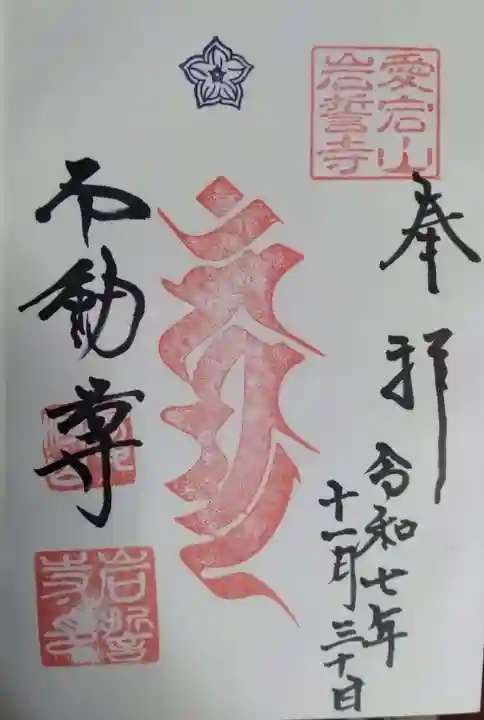 愛宕山
岩誓寺
奉拝
令和七年
十一月三十日
不動尊
岩誓
寺